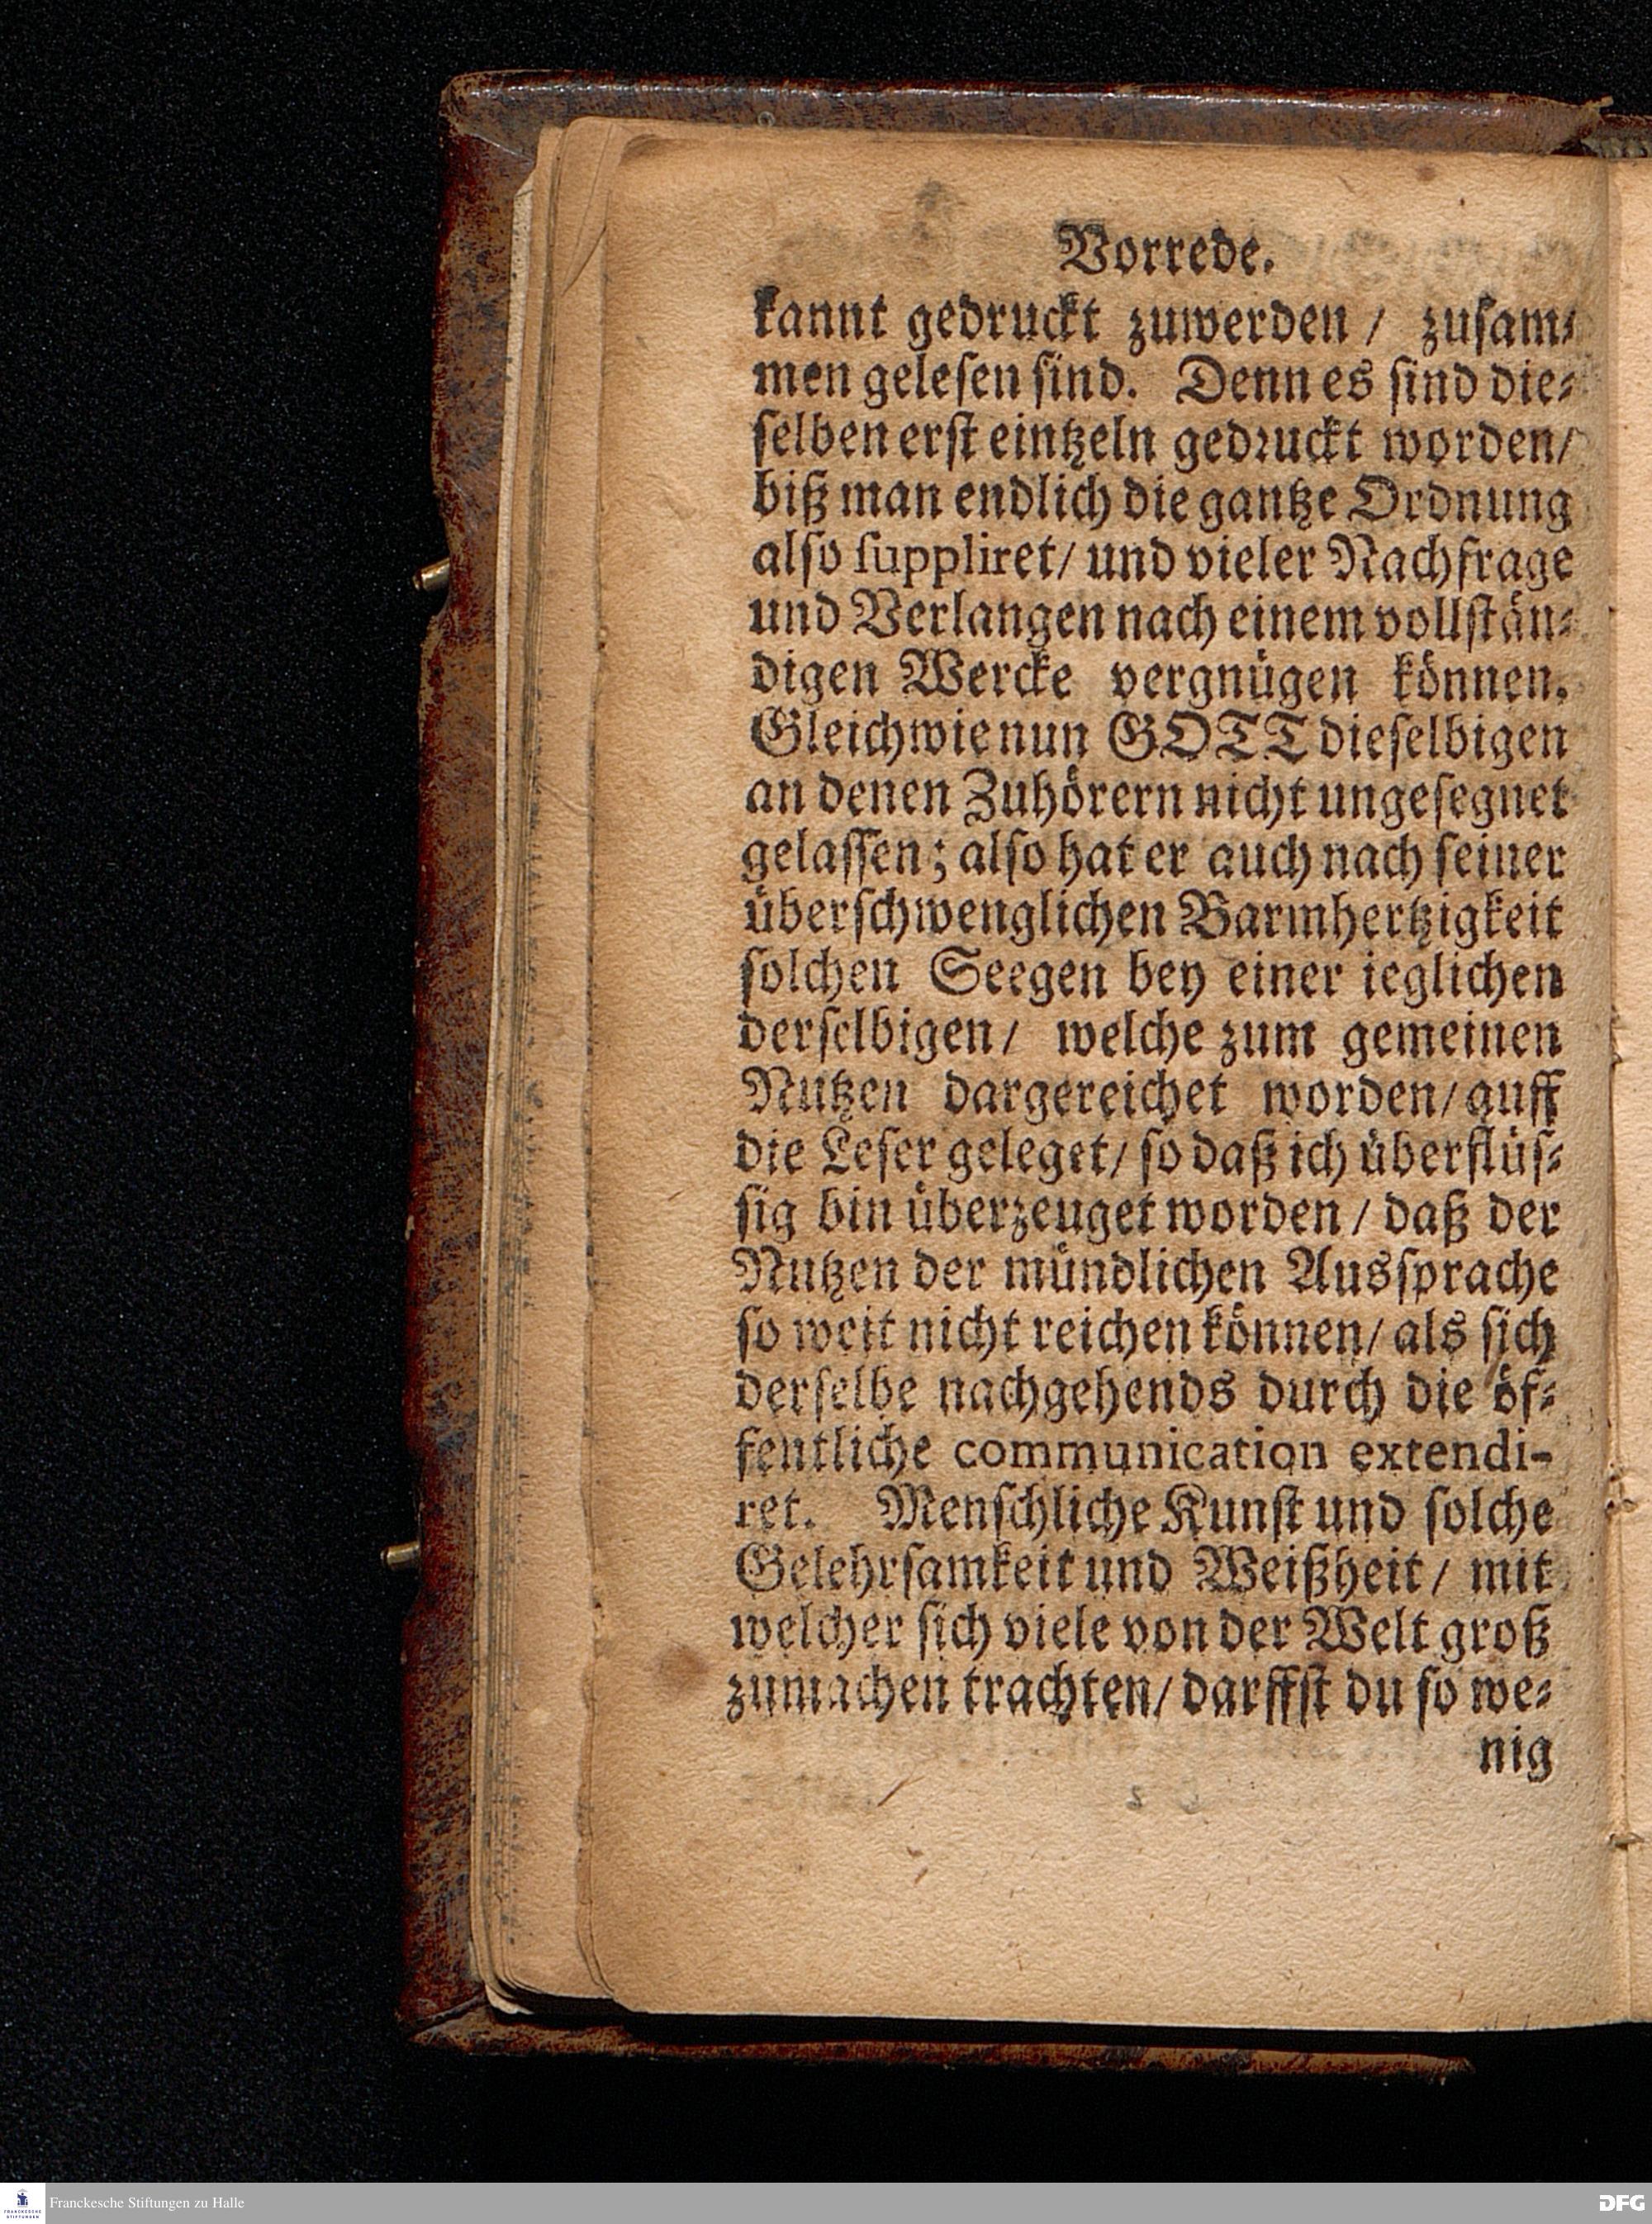 Vorrede.
kannt gedruckt zuwerden / zusam⸗
men gelesen sind. Denn es sind die⸗
selben erst eintzeln gedruckt worden/
biß man endlich die gantze Ordnung
also suppliret/ und vieler Nachfrage
und Verlangen nach einem vollstän⸗
digen Wercke vergnügen können.
Gleichwie nun GOTT dieselbigen
an denen Zuhörern nicht ungesegnet
gelassen; also hat er auch nach seiner
überschwenglichen Barmhertzigkeit
solchen Seegen bey einer ieglichen
derselbigen/ welche zum gemeinen
Nutzen dargereichet worden/ auff
die Leser geleget/ so daß ich überflüs⸗
sig bin überzeuget worden / daß der
Nutzen der mündlichen Aussprache
so weit nicht reichen können/ als sich
derselbe nachgehends durch die öf⸗
fentliche communication extendi-
ret. Menschliche Kunst und solche
Gelehrsamkeit und Weißheit / mit
welcher sich viele von der Welt groß
zumachen trachten/ darffst du so we⸗
nig
Franckesche Stiftungen zu Halle
FRANCKESCHE
STIFTUNGEN
DFG